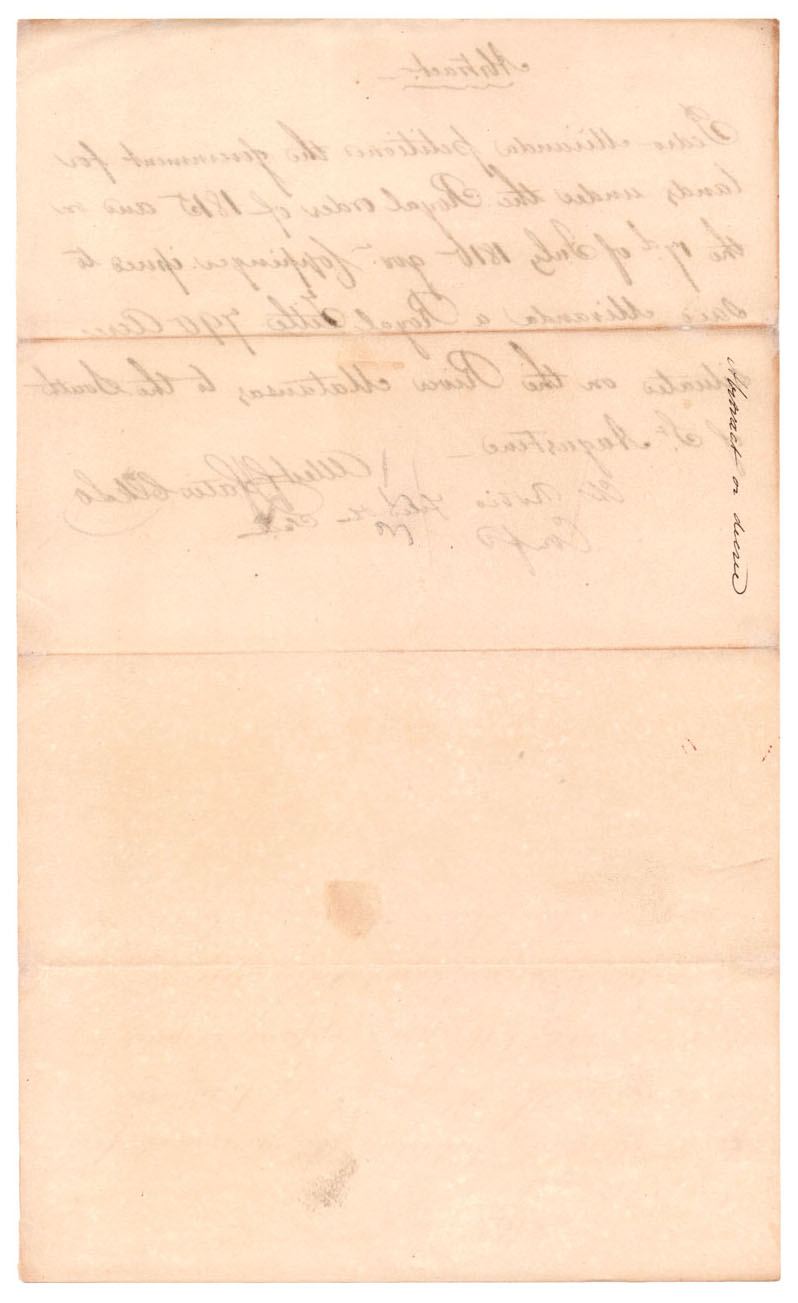 Abstract
Pedro Miranda petitions the government for
lands under the Royal order of 1815 and on
the 7th of July 1816 govr Coppinger issues to
said Miranda a Royal Title 790 Acres
situate on the River Matansas to the South
of St Augustine
Attest
Abstract or decree